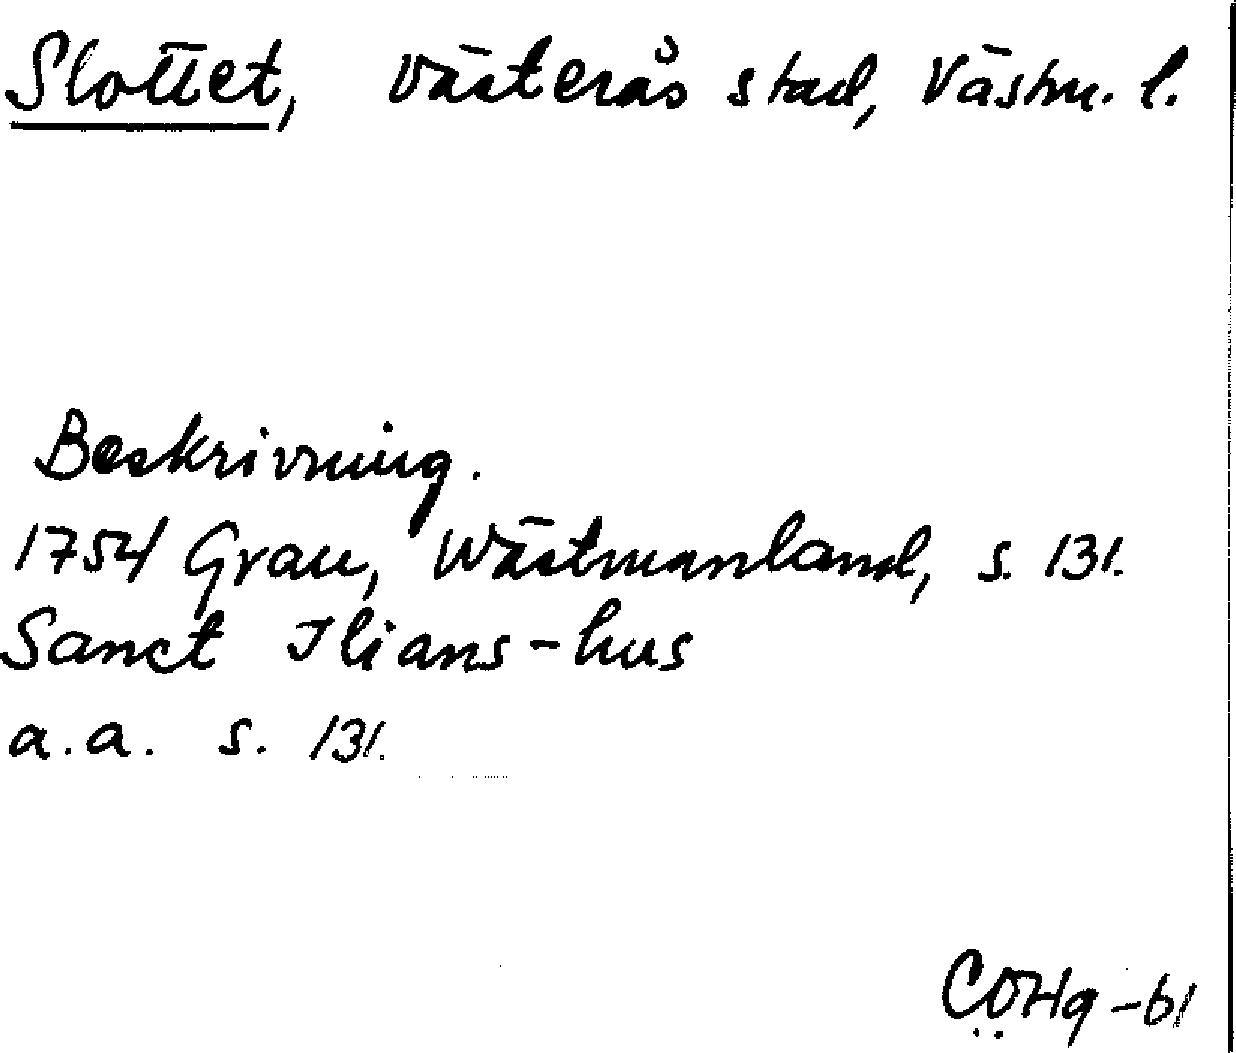 Slottet, Västerås stad, Västm. l.
Beskrivning.
1754 Grau, Wästmanland, s. 131.
Sanct Ilians-hus
a.a. s. 131.
-61